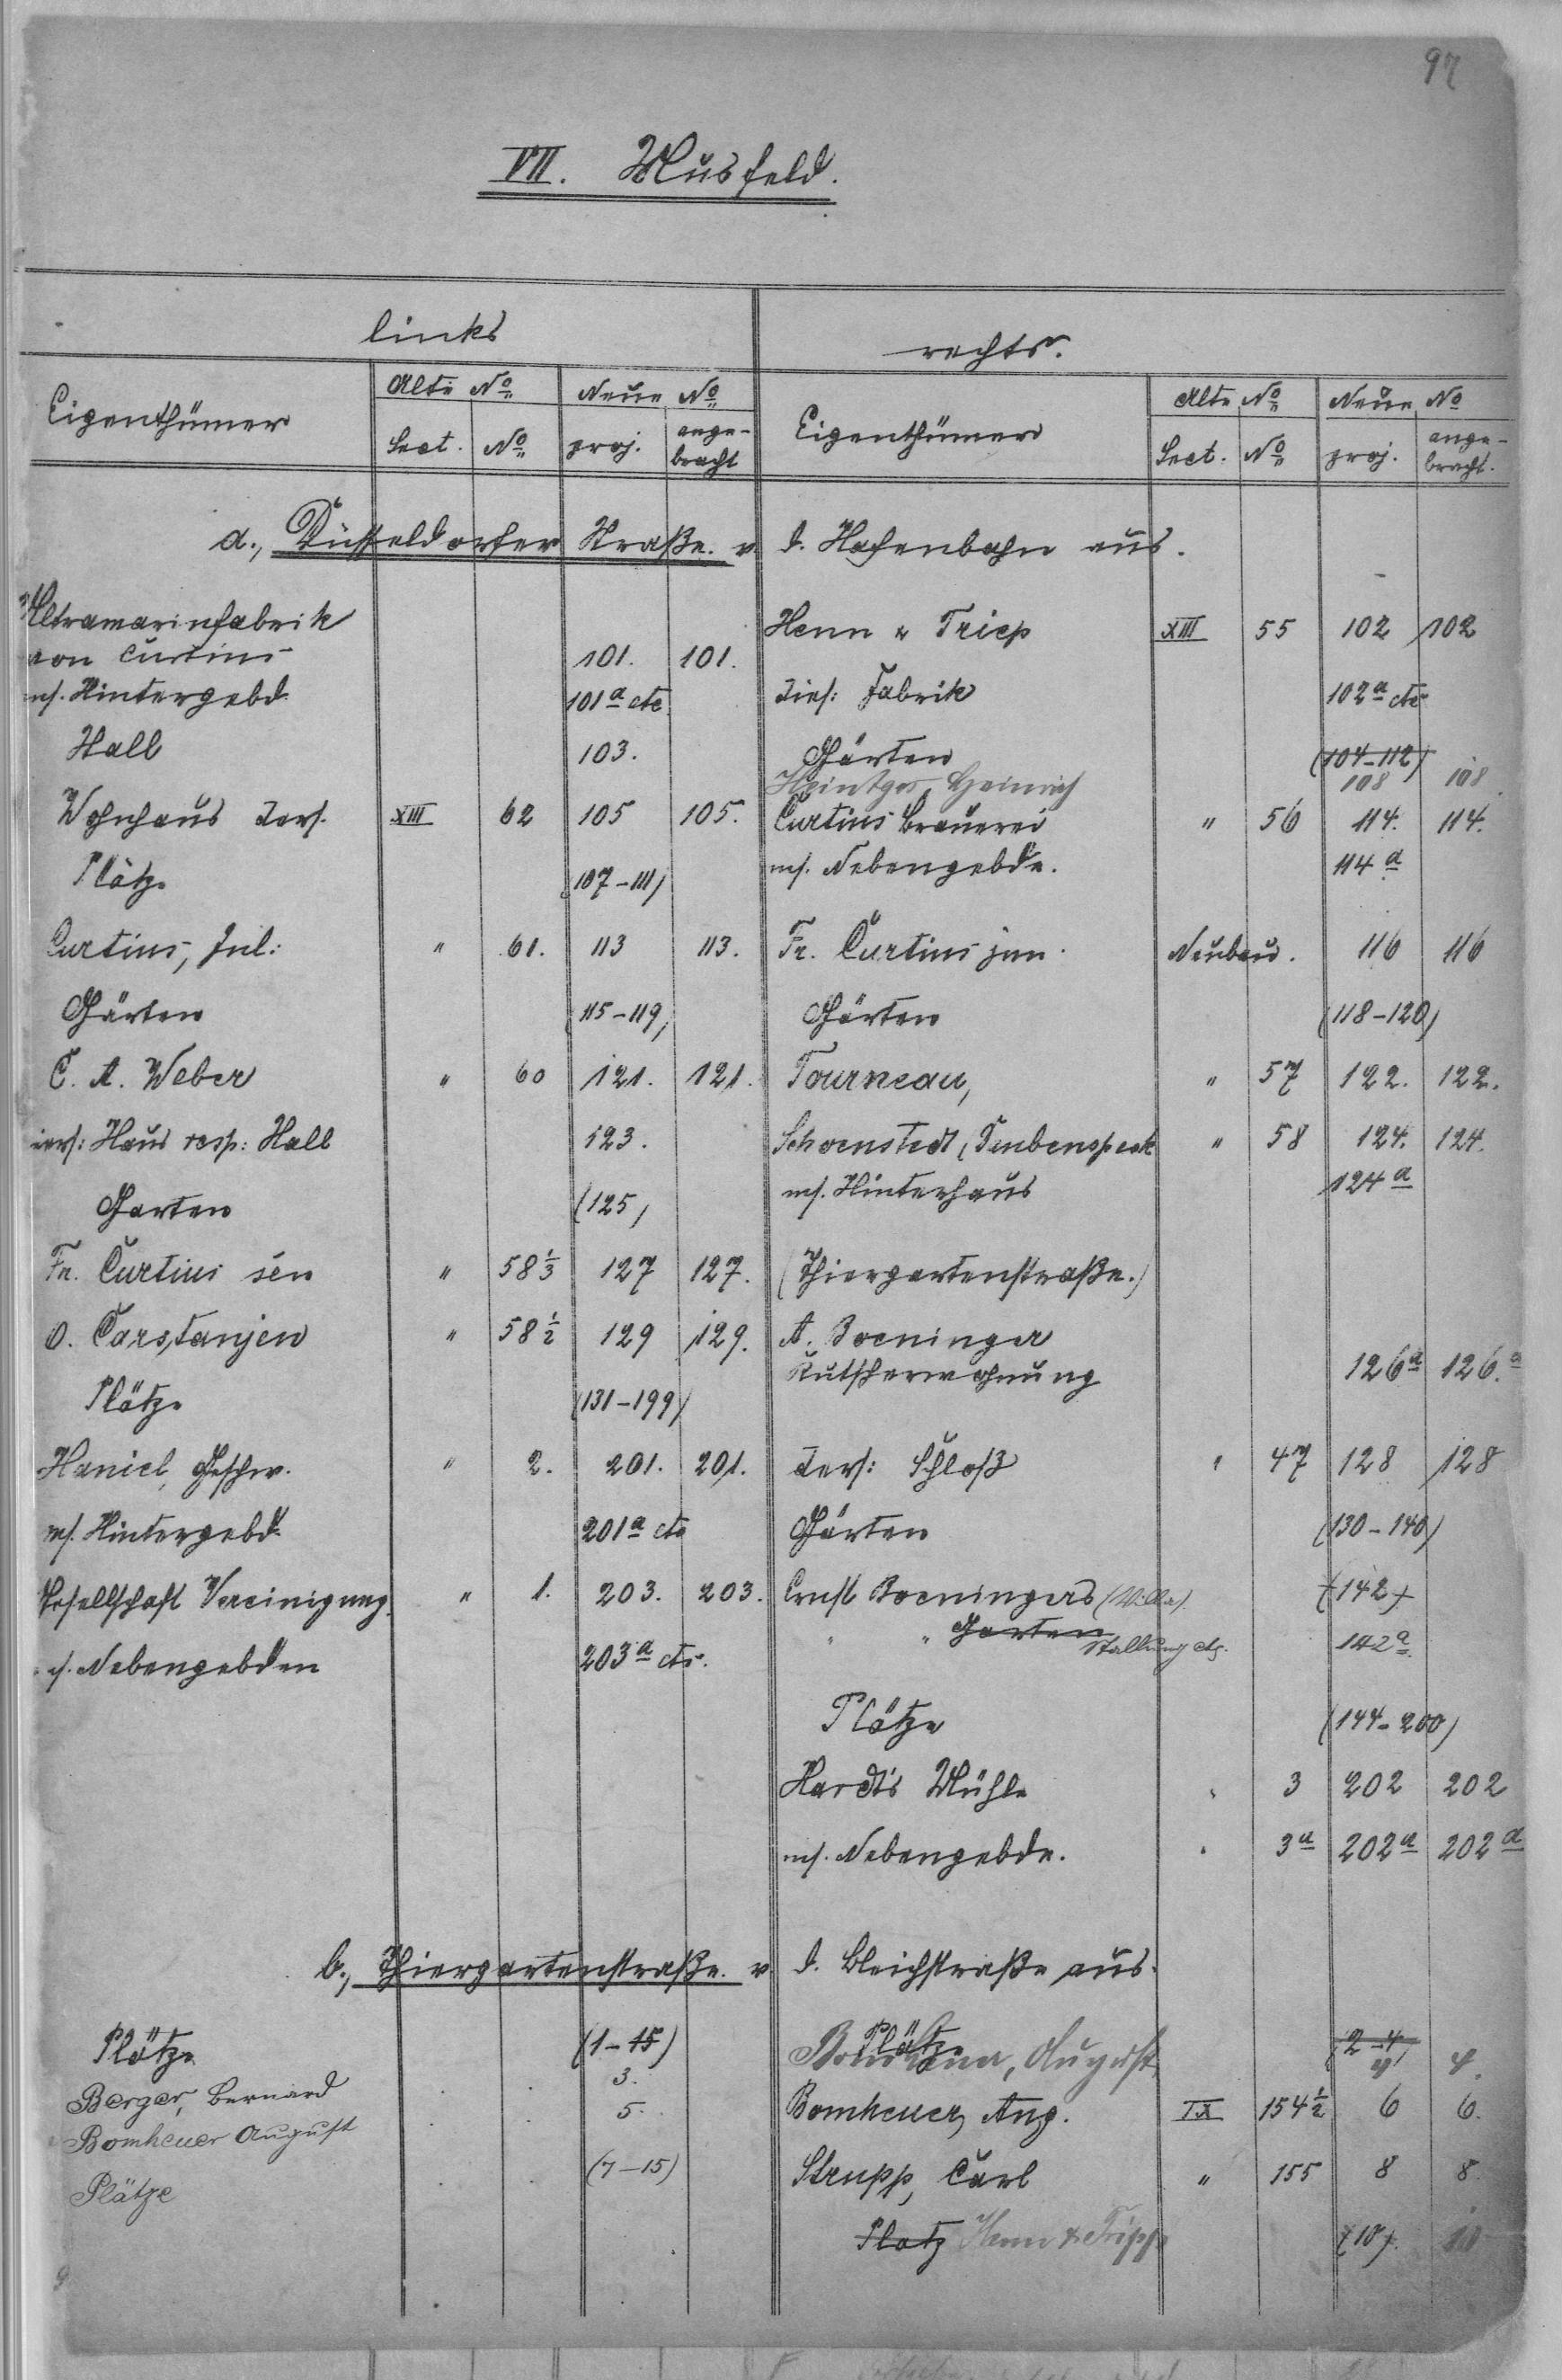 97
VII. Musfeld.
links
rechts.
Eigenthümer Alte No Neue No Eigenthümer Alte No Neue No
Sect. No proj. ange-bracht Sect. No proj. ange-bracht.
a., Düsseldorfer Straße. v. d. Hafenbahn aus.
Ultramarinfabrik Henn & Triep XIII 55 102 102
von Curtius 101. 101.
ms. Hintergebd. 101a etc. dies: Fabrik 102a etc
Stall 103. Gärten (104-112)
Heintges, Heinrich 108 108.
Wohnhaus ders. XIII 62 105 105. Curtius Brauerei " 56 114. 114.
Plätze (107-111) ms. Nebengebde. 114a
Curtius, Jul: " 61. 113 113. Fr. Curtius jun. Neubau. 116 116
Gärten (115-119) Gärten (118-120)
C. A. Weber " 60 121. 121. Tourneau, " 57 122. 122.
ders: Haus resp: Stall 123. Schoenstedt, Taubenspeck " 58 124. 124.
Garten (125) ms. Hinterhaus 124a
Fr. Curtius sen " 58 1/3 127 127. (Thiergartenstraße.)
O. Carstanjen " 58 1/2 129 129. A. Boeninger
Kutscherwohnung 126a 126.a
Plätze (131-199)
Haniel, Geschw. " 2. 201. 201. ders: Schloß " 47 128 128
ms. Hintergebd. 201a etc Gärten (130-140)
Gesellschaft Vereinigung. " 1. 203. 203. Ernst Boeningers (Villa). (142)
" " Garten Stallung etc. 142a
s. Nebengebden 203a etc.
Plätze (144-200)
Hardt's Mühle " 3 202 202
ms. Nebengebde. " 3a 202a 202a
b., Thiergartenstraße. v. d. Bleichstraße aus.
Plätze (1-15) Plätze (2-4)
August 4 4.
Berger, Bernard 3.
Bomheuer August 5. Bomheuer, Aug. IX 154 1/2 6 6.
Plätze (7-15) Strupp, Carl " 155 8 8.
Platz Henn & Triep (10). 10